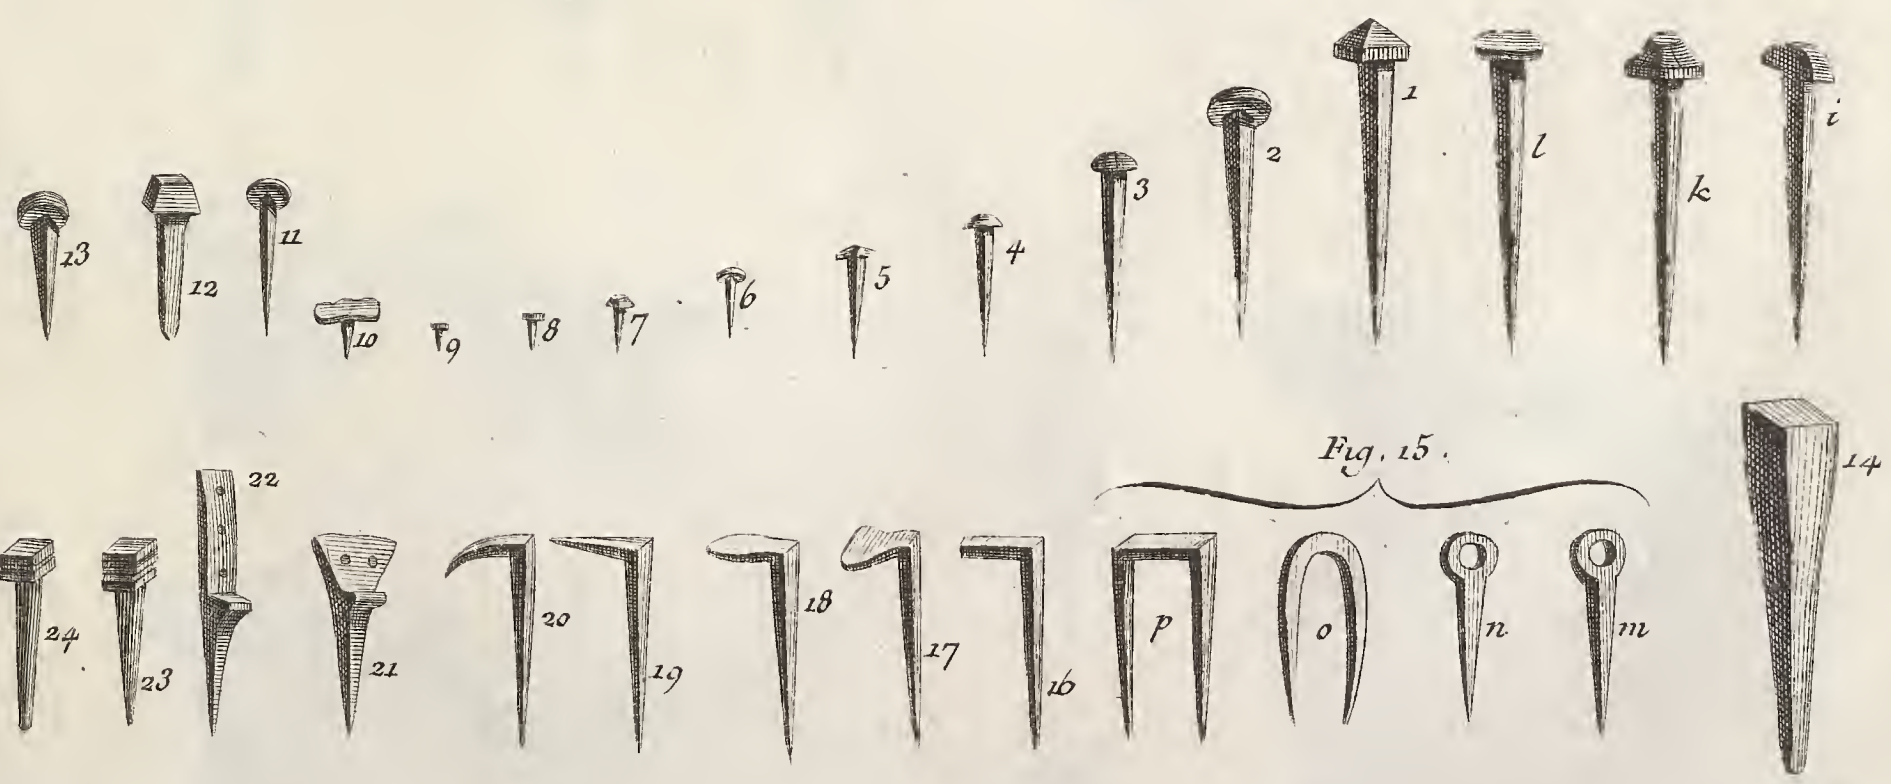 13 12 11 10 9 8 7 6 5 4 3 2 1 l k i
Fig. 15.
14
24 23 22 21 20 19 18 17 16 p o n m